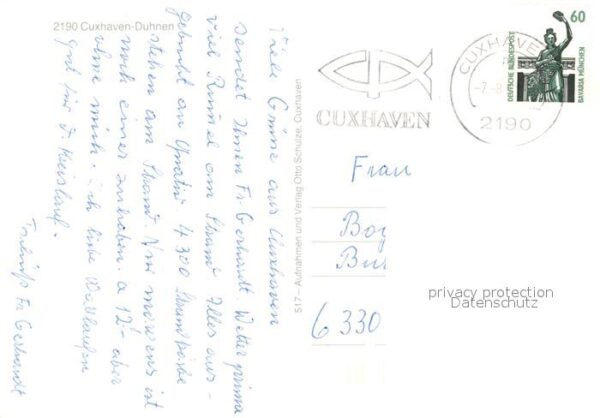 2190 Cuxhaven-Duhnen
Viele Grüße aus Cuxhaven
sendet Ihnen Fr. Gerhardt. Wetter prima
viel Rummel am Strand. Alles aus-
gebucht an 4300 Strandkörbe
stehen am Strand. Nur morgens ist
noch einer zu haben. a 12.- aber
ohne mich. Ich liebe Wattlaufen
gut für d. Kreislauf.
Fr Gerhardt
517 – Aufnahmen und Verlag Otto Schulze, Cuxhaven
CUXHAVEN
CUXHAVE
-7.-8
2190
60
DEUTSCHE BUNDESPOST
BAVARIA MÜNCHEN
Frau
Bog
Bu
6330
privacy protection
Datenschutz